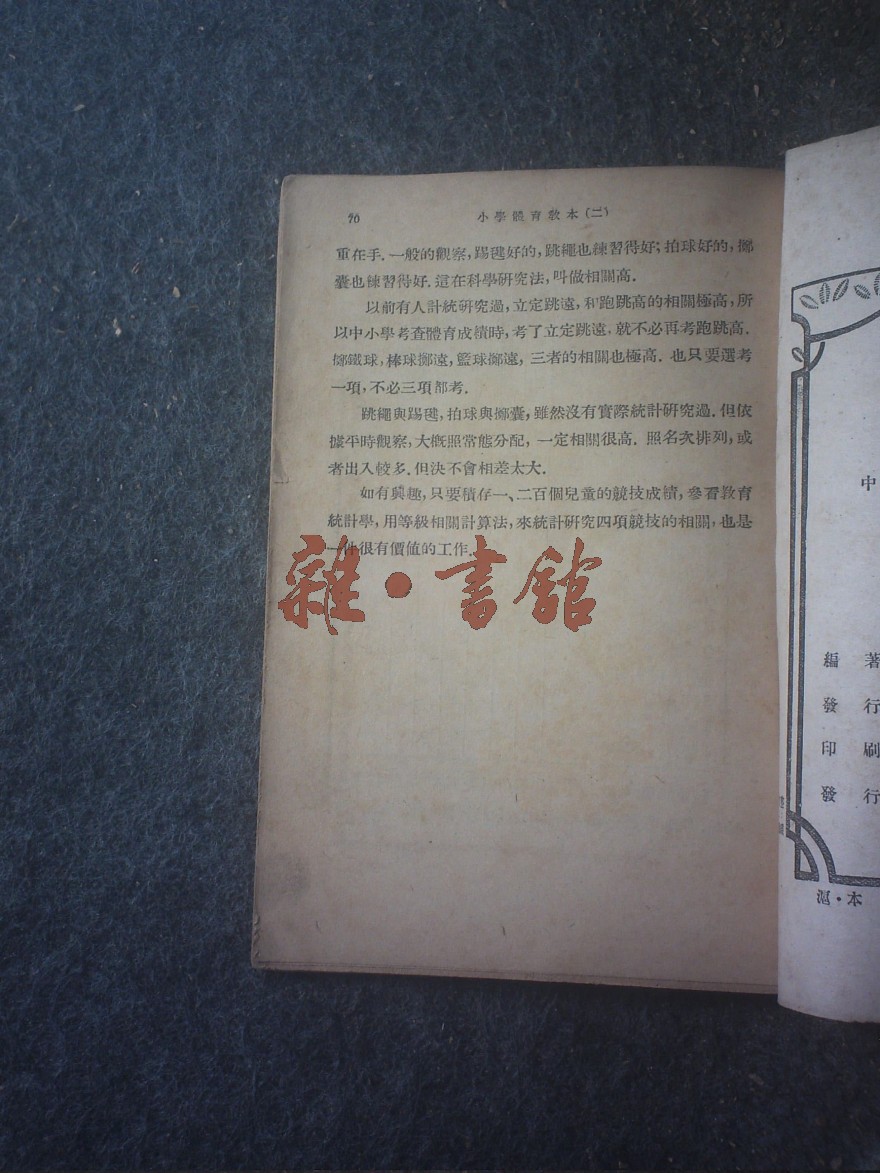 70
小學體育教本(二)
重在手．一般的觀察，踢毽好的，跳繩也練習得好；拍球好的，擲
囊也練習得好．這在科學研究法，叫做相關高．
以前有人計統研究過，立定跳遠，和跑跳高的相關極高，所
以中小學考查體育成績時，考了立定跳遠，就不必再考跑跳高．
擲鐵球，棒球擲遠，籃球擲遠，三者的相關也極高．也只要選考
一項，不必三項都考．
跳繩與踢毽，拍球與擲囊，雖然沒有實際統計研究過．但依
據平時觀察，大概照常態分配，一定相關很高．照名次排列，或
者出入較多．但決不會相差太大．
如有興趣，只要積存一、二百個兒童的競技成績，參看教育
統計學，用等級相關計算法，來統計研究四項競技的相關，也是
一件很有價値的工作．
雜・書館
中
編 著
發 行
印 刷
發 行
本